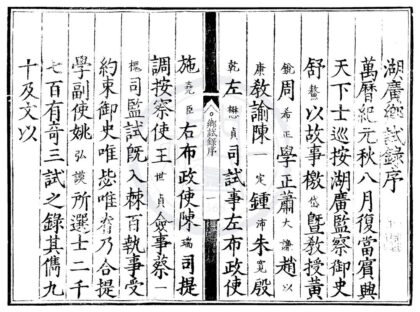 湖廣鄉試錄序
萬曆紀元秋八月復當賓興
天下士巡按湖廣監察御史
舒鰲以故事檄岱暨教授黃
銳周希正學正蕭大謙趙以
康教諭陳一定鍾沛朱寬殷
乾左懋貞司試事左布政使
鄉試錄序
施堯臣右布政使陳瑞司提
調按察使王世貞僉事蔡一
槐司監試既入棘百執事受
約束御史唯毖唯有乃合提
學副使姚弘謨所選士二千
七百有奇三試之錄其儁九
十及文以